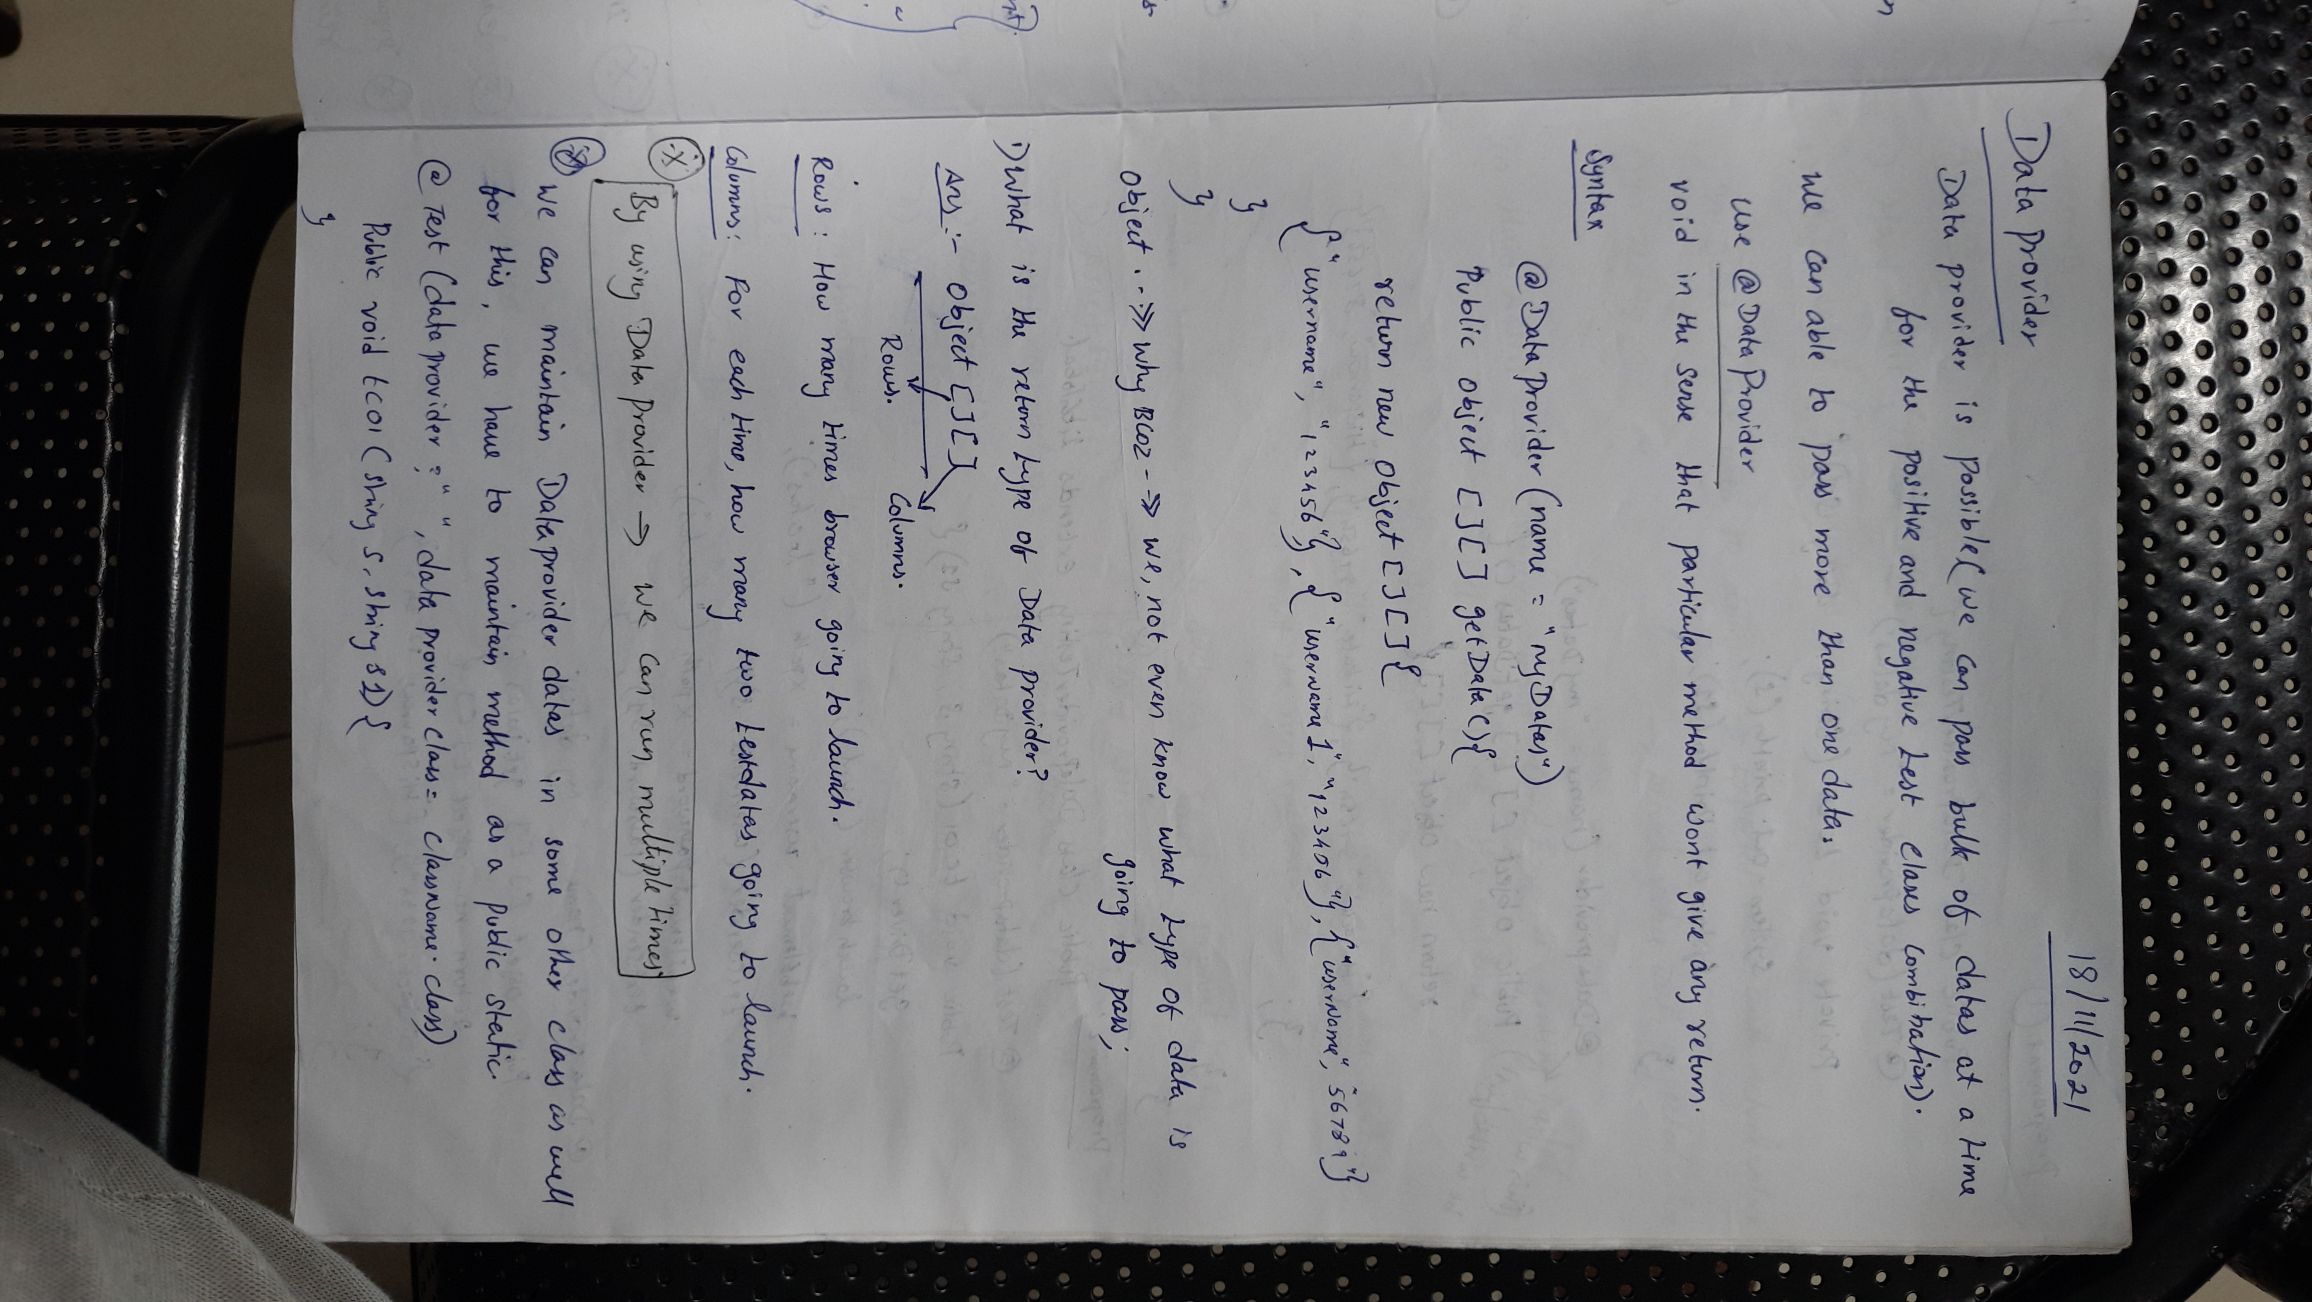 18/11/2021
Data Provider
Data provider is possible (we can pass bulk of datas at a time
for the positive and negative test class combination).
We can able to pass more than one data.
use @DataProvider
void in the sense that particular method wont give any return.
Syntax
@DataProvider(name = "myDatas")
Public object [][] getData(){
return new object[][]{
{"username", "123456"}, {"username1", "123456"}, {"username", "56789"}
}
}
Object ..->> why BCoz --> we, not even know what type of data is
going to pass;
1) What is the return type of Data provider?
Ans :- Object [][]
Rows. Columns.
Rows : How many times browser going to launch.
Columns: For each time, how many two testdatas going to launch.
By using DataProvider → we can run multiple times
We can maintain Dataprovider datas in some other class as well
for this, we have to maintain method as a public static.
@Test (dataprovider = " ", dataproviderclass = classname.class)
Public void tc01 (String s, String s1){
}